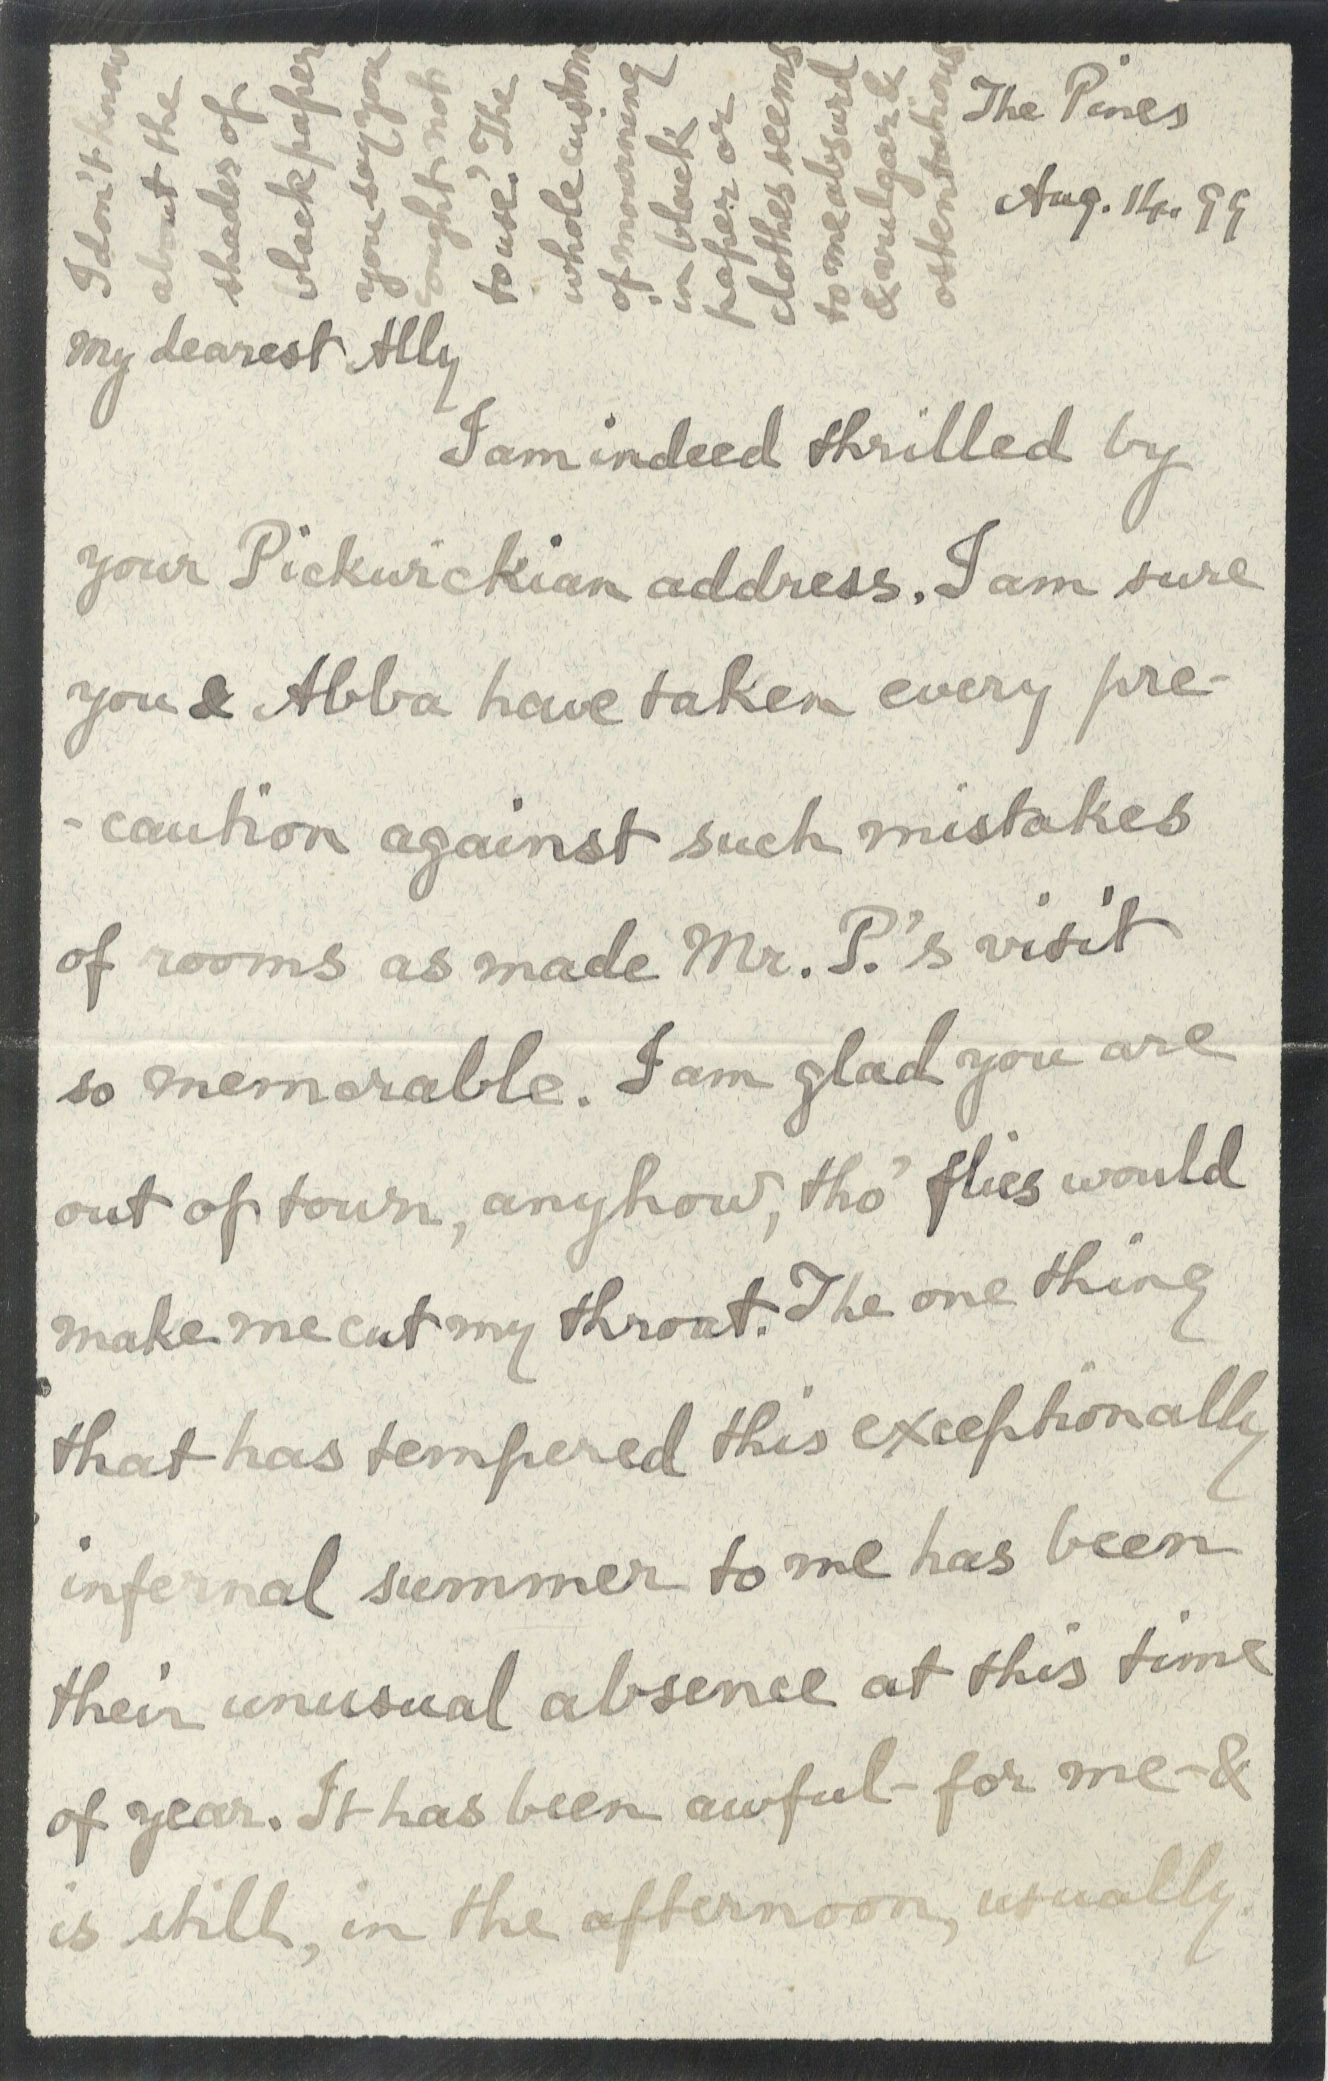 The Pines
Aug. 14. 99
My dearest Ally
I am indeed thrilled by
your Pickwickian address. I am sure
you & Abba have taken every pre-
-caution against such mistakes
of rooms as made Mr. P.'s visit
so memorable. I am glad you are
out of town, anyhow, tho' flies would
make me cut my throat. The one thing
that has tempered this exceptionally
infernal summer to me has been
their unusual absence at this time
of year. It has been awful - for me - &
is still, in the afternoon, usually.
I don't know
about the
shades of
black paper
you say you
'ought not
to use'. The
whole custom
of mourning
in black
paper or
clothes seems
to me absurd
& vulgar &
ostentatious